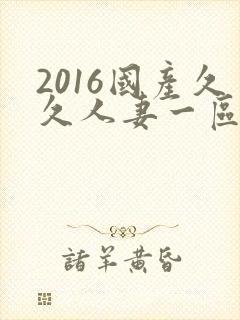 2016國産久
久人妻一區
諸羊黄昏